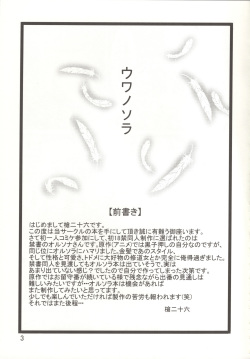 ウワノソラ
【前書き】
はじめまして槍二十六です。
この度は当サークルの本を手にして頂き誠に有難う御座います。
さて初一人コミケ参加にして、初18禁同人制作に選ばれたのは
禁書のオルソナさんです。原作(アニメ)では黒子押しの自分なのですが、
同じつてにオルソラにハマりました。金髪であのスタイル。
そして性格と可愛さ、トドメに大好物の修道女とか完全に俺得過ぎました。
禁書同人を見渡してもオルソラ本は出ていそうで、実は
あまり出ていない感じ?でしたので自分で作ってしまった次第です。
原作ではお留守番が続いている様で残念ながら出番の見通しは
難しいみたいですが―オルソラ本は機会があれば
また制作してみたいと思ってます。
少しでも楽しんでいただければ製作の苦労も報われます(笑)
それではまた後程～
槍二十六
3